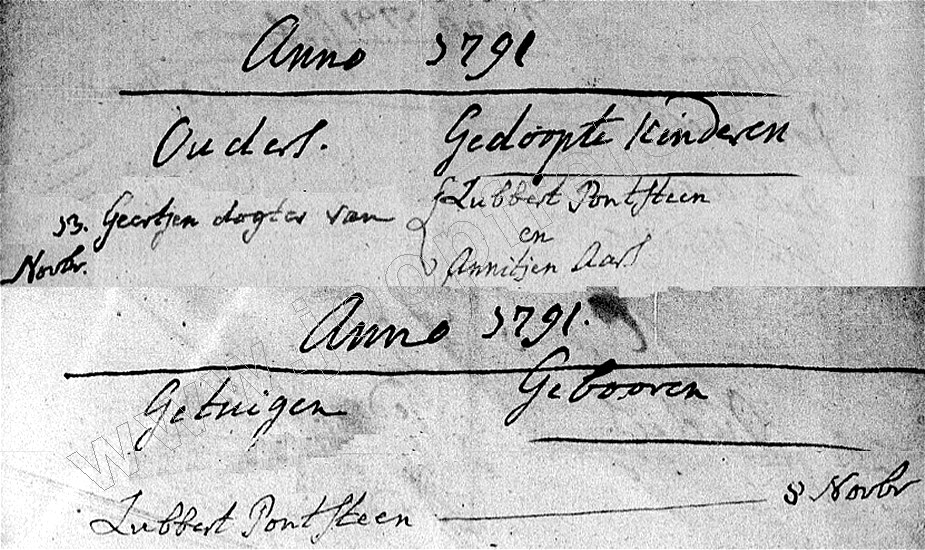 Anno 1791
Ouders. Gedoopte Kinderen
13. Geertjen dogter van { Lubbert Pontsteen
en
Novbr. Annitjen Aars
Anno 1791.
Getuigen Gebooren
Lubbert Pontsteen — 8 Novbr